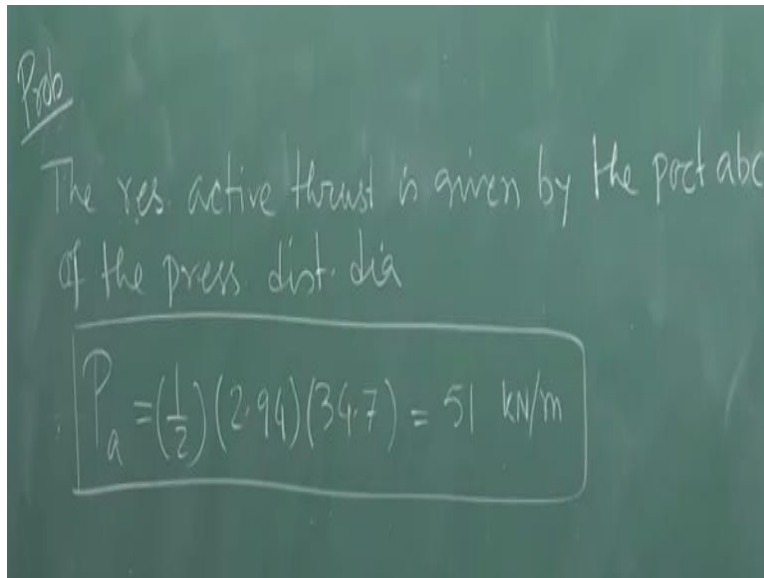 Prob
The res. active thrust is given by the port abc
of the press. dist. dia
P_a = (1/2)(2.94)(34.7) = 51 kN/m